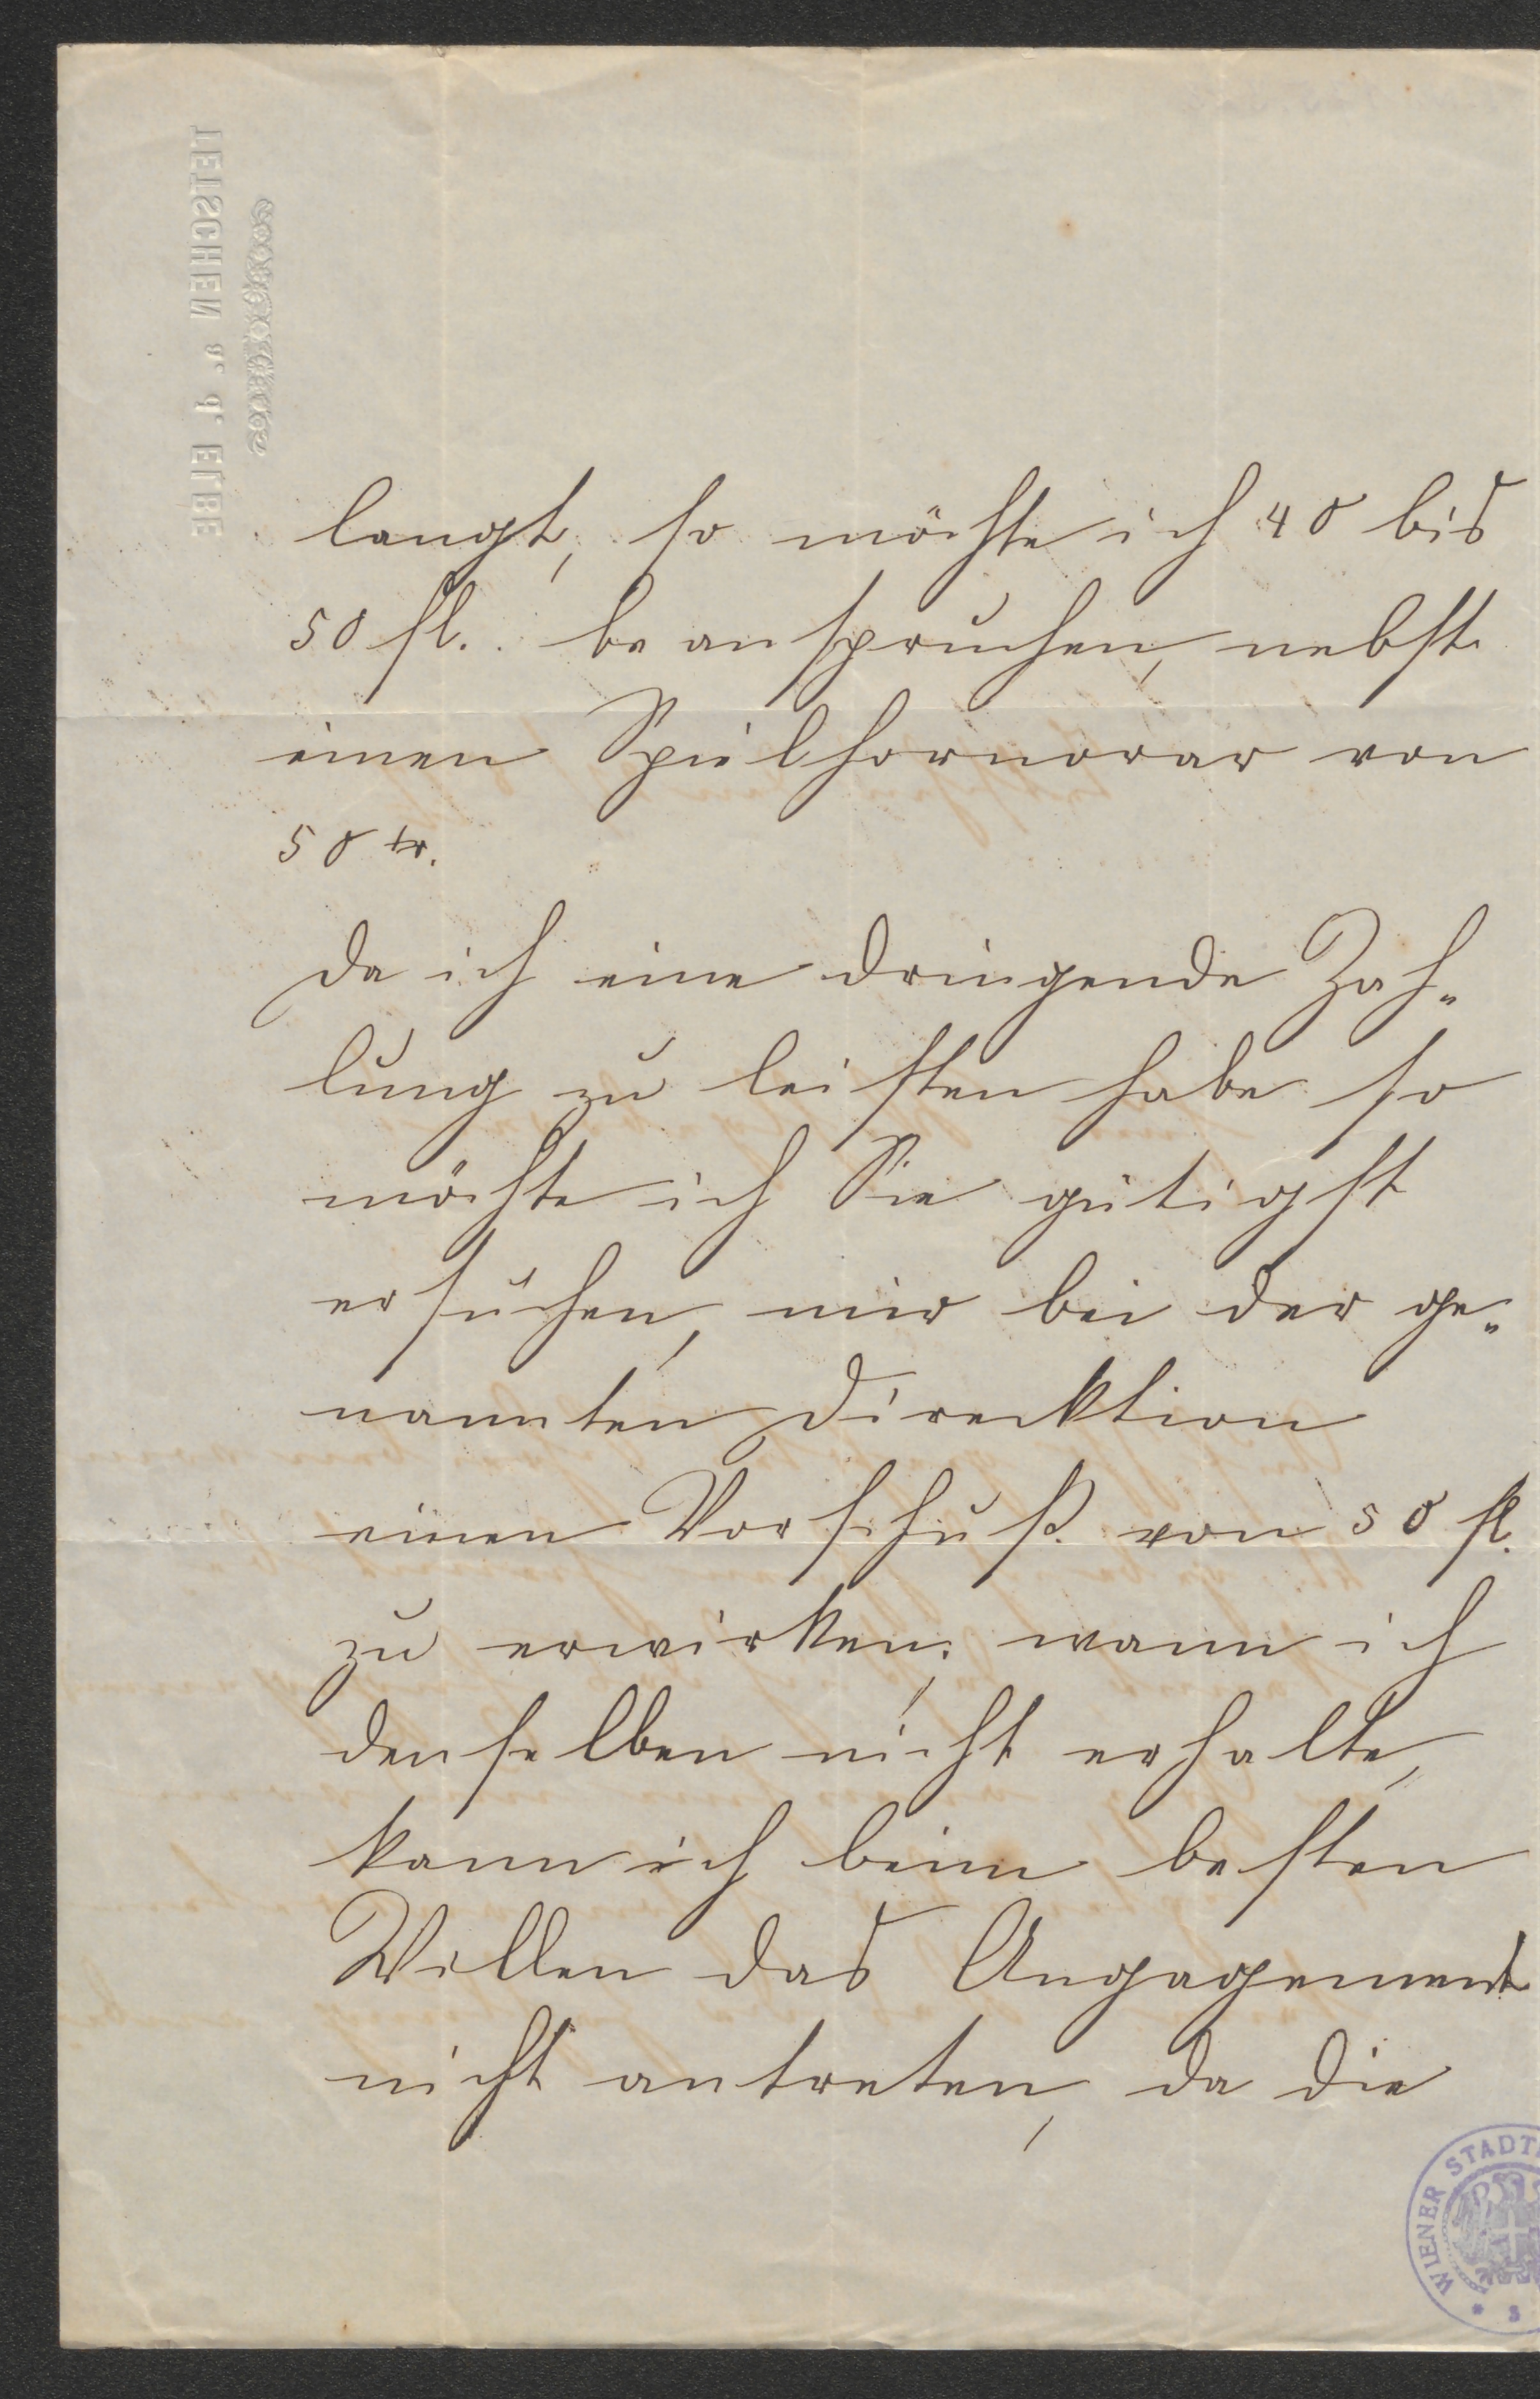 TETSCHEN a. d. ELBE
langt, so möchte ich 40 bis
50 fl. beanspruchen, nebst
einen Spielhornorar von
50 kr.
Da ich eine dringende Zah„
lung zu leisten habe so
möchte ich Sie gütigst
ersuchen, mir bei der ge„
nannten Direcktion
einen Vorschuß von 50 fl.
zu erwirken; wenn ich
denselben nicht erhalte,
kann ich beim besten
Willen das Angagement
nicht antreten, da die
WIENER STADT